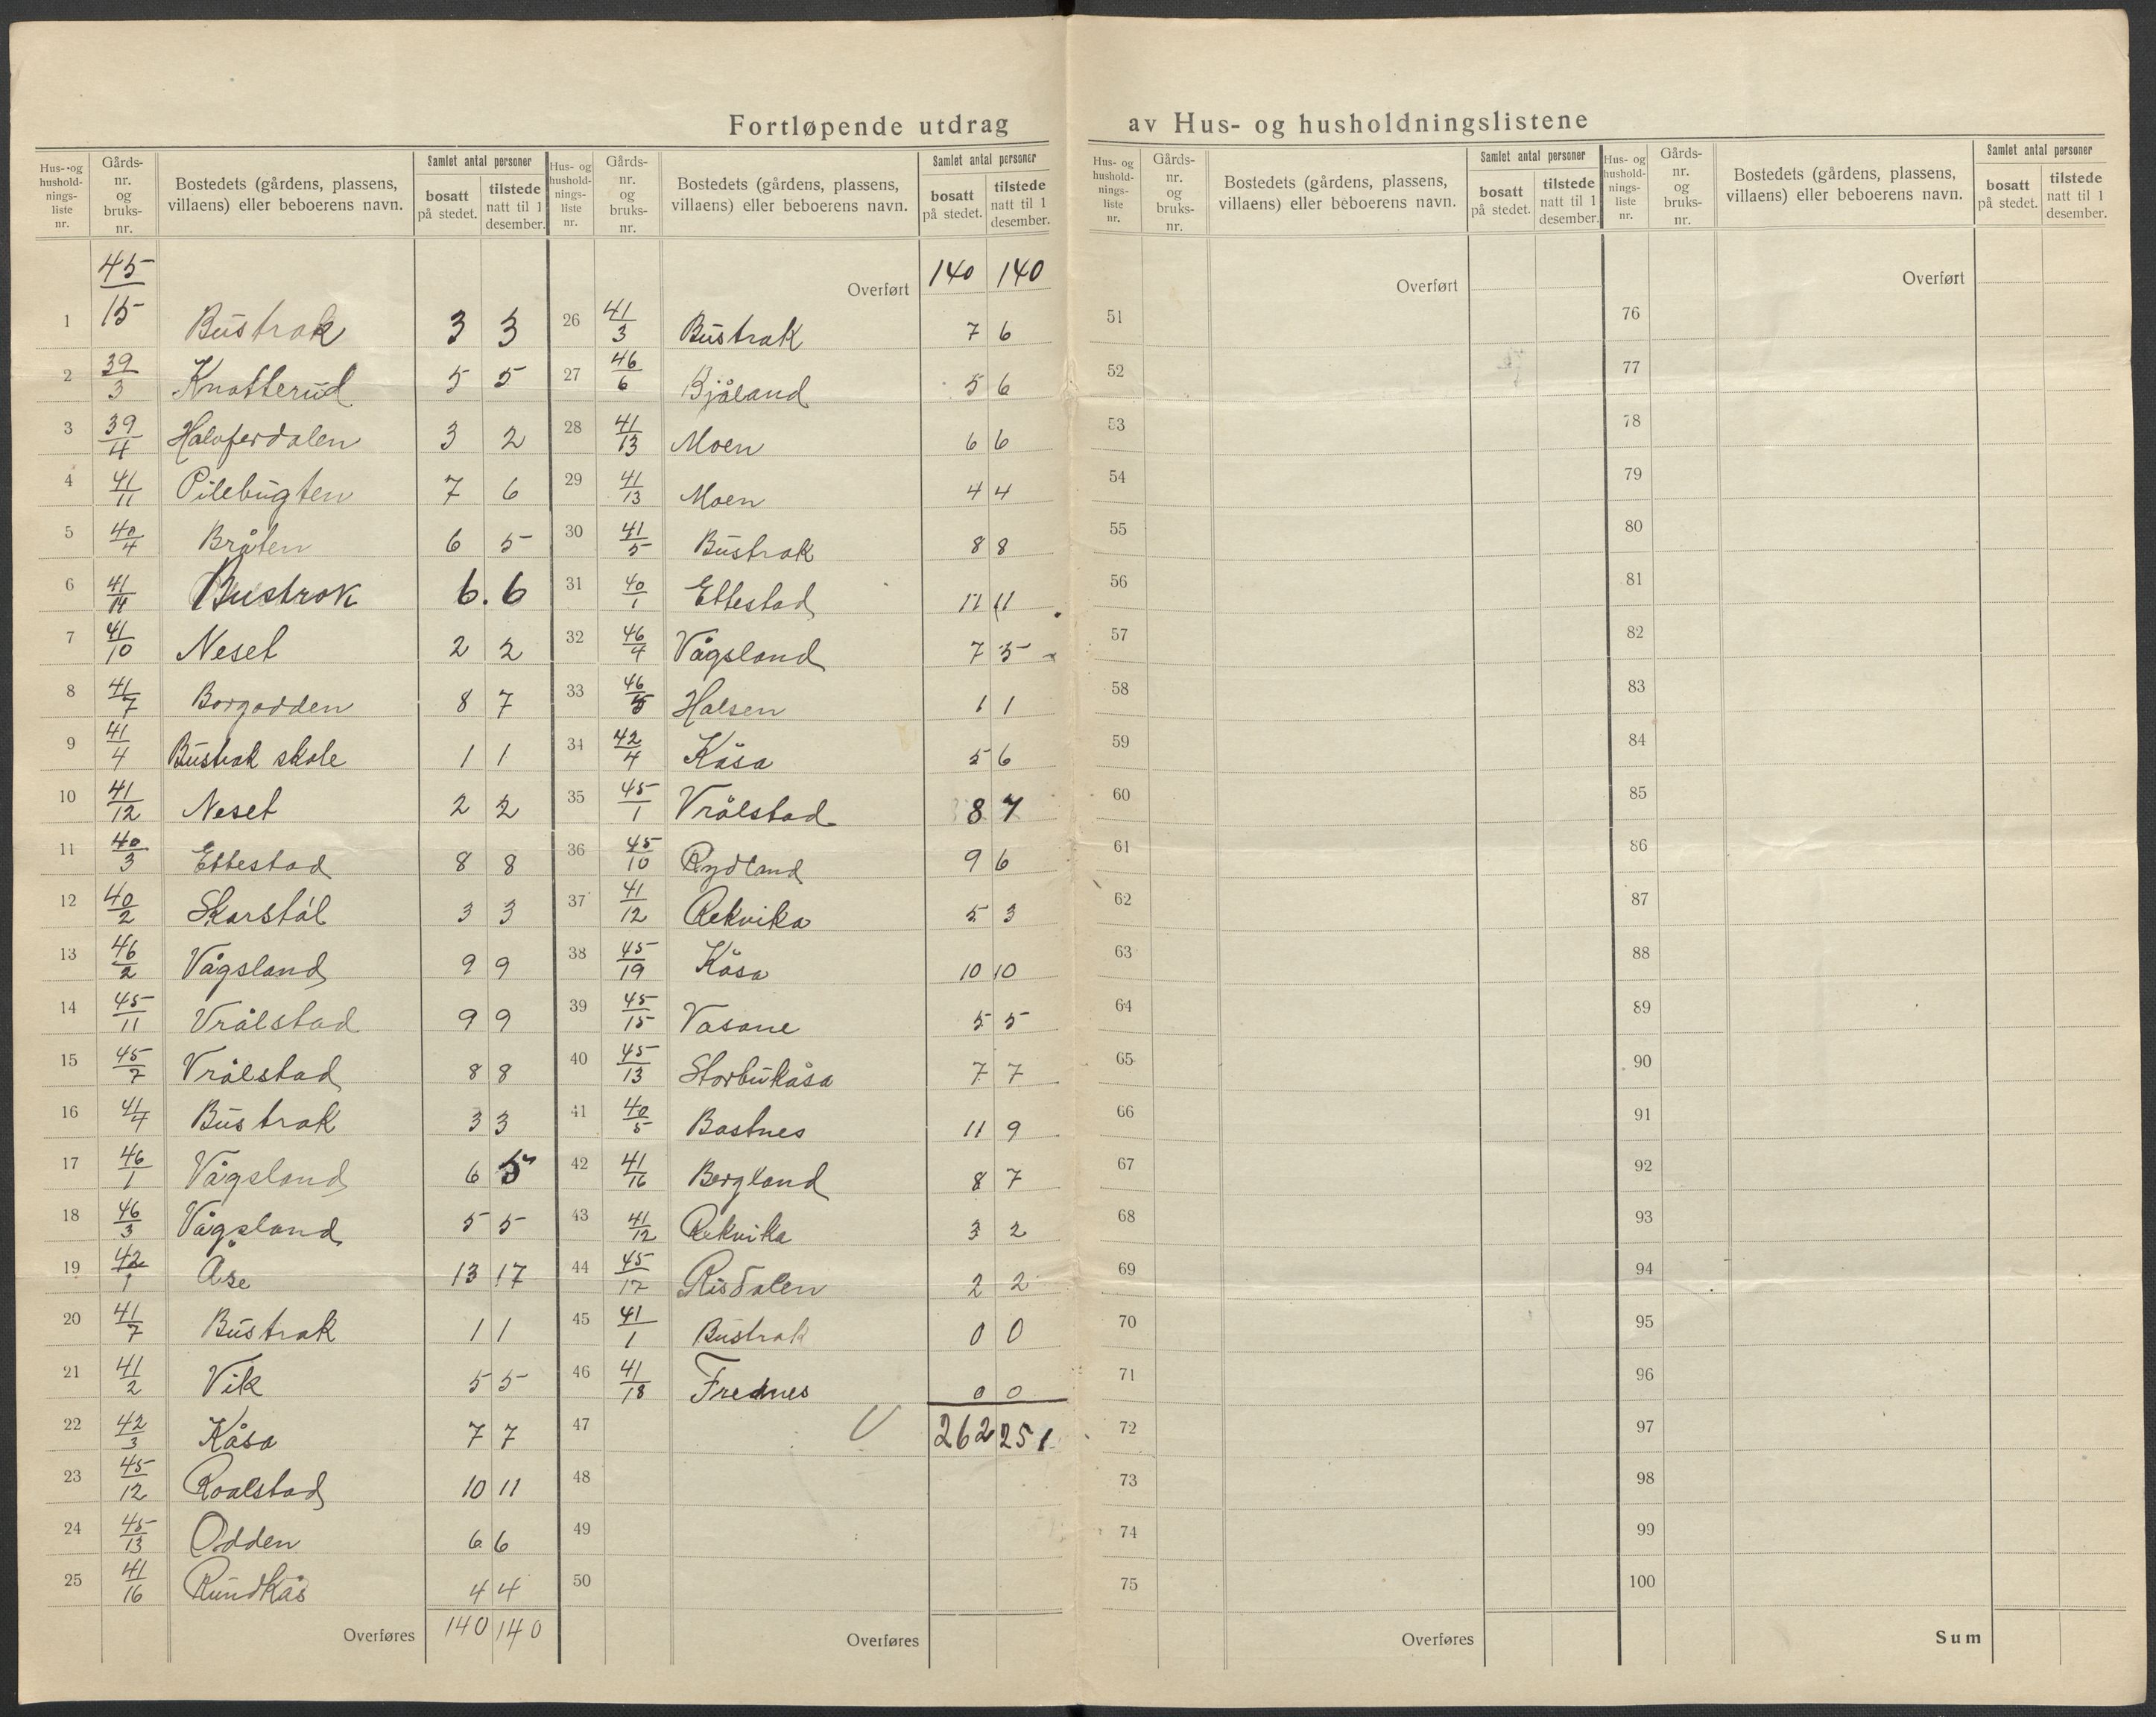 Fortløpende utdrag av Hus- og husholdningslistene
Hus- og hushold-nings-liste nr. | Gårds-nr. og bruks-nr. | Bostedets (gårdens, plassens, villaens) eller beboerens navn. | Samlet antal personer | bosatt på stedet. | tilstede natt til 1 desember.
1 45/15 Bustrak 3 3
2 39/3 Knatterud 5 5
3 39/4 Halvferdalen 3 2
4 41/11 Pilebugten 7 6
5 40/4 Bråten 6 5
6 41/14 Bustrok 6. 6
7 41/10 Neset 2 2
8 41/7 Borgodden 8 7
9 41/4 Bustrak skole 1 1
10 41/12 Neset 2 2
11 40/3 Ettestad 8 8
12 40/2 Skarstøl 3 3
13 46/2 Vågsland 9 9
14 45/11 Vrålstad 9 9
15 45/7 Vrålstad 8 8
16 41/4 Bustrak 3 3
17 46/1 Vågsland 6 5
18 46/3 Vågsland 5 5
19 42/1 Åse 13 17
20 41/7 Bustrak 1 1
21 41/2 Vik 5 5
22 42/3 Kåsa 7 7
23 45/12 Roalstad 10 11
24 45/13 Odden 6 6
25 41/16 Rundkås 4 4
Overføres 140 140
Hus- og hushold-nings-liste nr. | Gårds-nr. og bruks-nr. | Bostedets (gårdens, plassens, villaens) eller beboerens navn. | Samlet antal personer | bosatt på stedet. | tilstede natt til 1 desember.
Overført 140 140
26 41/3 Bustrak 7 6
27 46/6 Bjåland 5 6
28 41/13 Moen 6 6
29 41/13 Moen 4 4
30 41/5 Bustrak 8 8
31 40/1 Ettestad 11 11
32 46/4 Vågsland 7 5
33 46/5 Halsen 1 1
34 42/4 Kåsa 5 6
35 45/1 Vrålstad 8 7
36 45/10 Rydland 9 6
37 41/12 Rekvika 5 3
38 45/19 Kåsa 10 10
39 45/15 Vasane 5 5
40 45/13 Storbukåsa 7 7
41 40/5 Bastnes 11 9
42 41/16 Bergland 8 7
43 41/12 Rekvika 3 2
44 45/17 Risdalen 2 2
45 41/1 Bustrak 0 0
46 41/18 Frednes 0 0
47 262 251
48
49
50
Overføres
Hus- og hushold-nings-liste nr. | Gårds-nr. og bruks-nr. | Bostedets (gårdens, plassens, villaens) eller beboerens navn. | Samlet antal personer | bosatt på stedet. | tilstede natt til 1 desember.
Overført
51
52
53
54
55
56
57
58
59
60
61
62
63
64
65
66
67
68
69
70
71
72
73
74
75
Overføres
Hus- og hushold-nings-liste nr. | Gårds-nr. og bruks-nr. | Bostedets (gårdens, plassens, villaens) eller beboerens navn. | Samlet antal personer | bosatt på stedet. | tilstede natt til 1 desember.
Overført
76
77
78
79
80
81
82
83
84
85
86
87
88
89
90
91
92
93
94
95
96
97
98
99
100
Sum